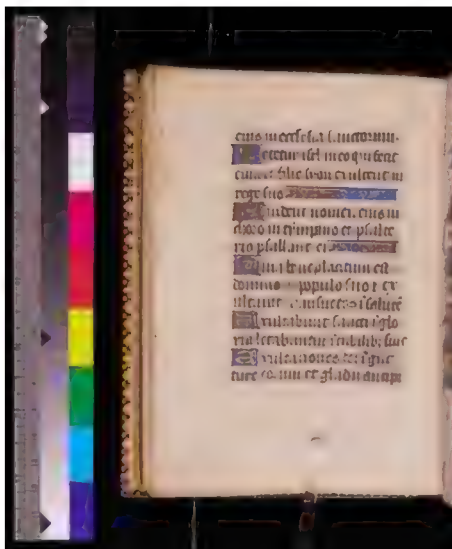 eius in ecclesia sanctorum.
Letetur isrl in eo qui fecit
eum et filie syon exultent in
rege suo
Laudent nomen eius in
choro in tympano et psalte
rio psallant ei
Quia beneplacitum est
domino in populo suo et ex
altauit mansuetos ī salutē
Exultabunt sancti ī glo
ria letabuntur ī cubilibus suis
Exultationes dei ī gut
ture eorum et gladii ancipi